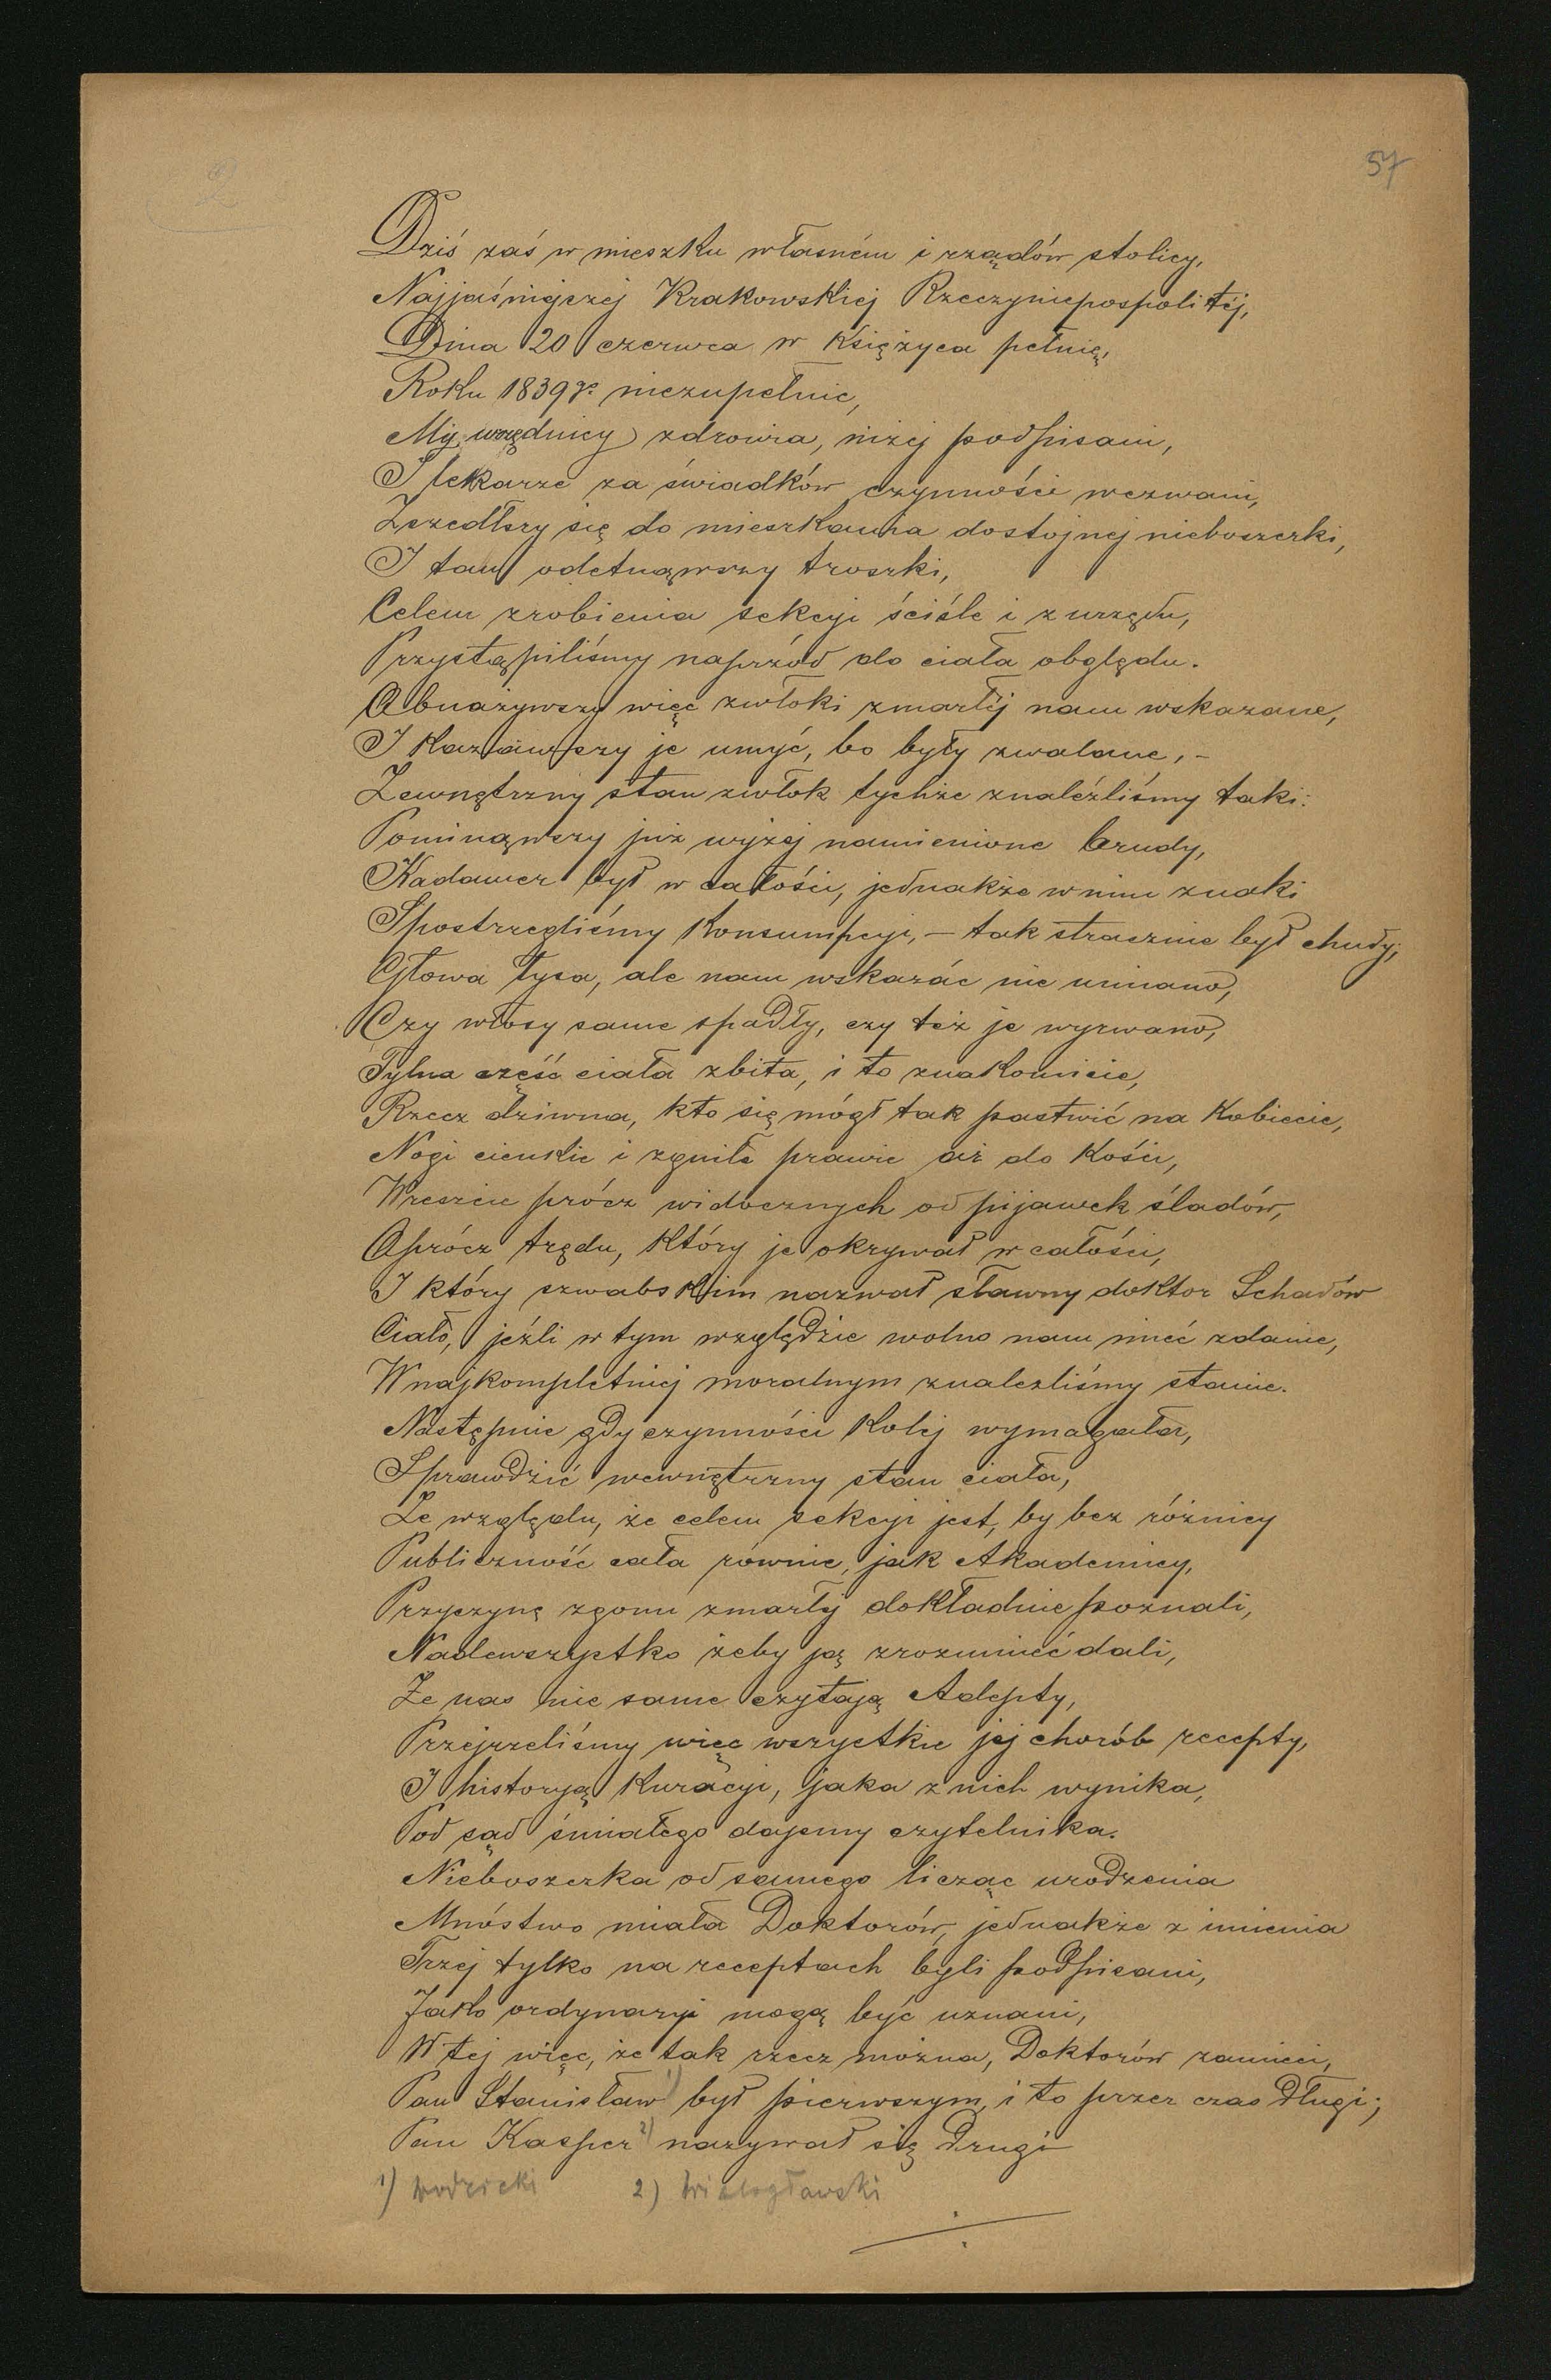 57
Dziś zaś w mieszku własném i rządów stolicy,
Najjaśniejszej Krakowskiej Rzeczyniepospolitéj,
Dnia 20 czerwca w księżyca pełnię,
Roku 1839 r. niezupełnie,
My, urzędnicy zdrowia, niżej podpisani,
I lekarze za świadków czynności wezwani,
Zszedłszy się do mieszkania dostojnej nieboszczki,
I tam odetnąwszy troszki,
Celem zrobienia sekcyi ściśle i z urzędu,
Przystąpiliśmy naprzód do ciała obględu.
Obnażywszy więc zwłoki zmarłéj nam wskazane,
I kazawszy je umyć, bo były zwalane, -
Zewnętrzny stan zwłok tychże znaleźliśmy taki:
Pominąwszy już wyżej namienione brudy,
Kadawer był w całości, jednakże w nim znaki
Spostrzegliśmy Konsumpcyi, – tak strasznie był chudy;
Głowa łysa, ale nam wskazać nie umiano,
Czy włosy same spadły, czy też je wyrwano,
Tylna część ciała zbita, i to znakomicie,
Rzecz dziwna, kto się mógł tak pastwić na Kobiecie,
Nogi cienkie i zgniłe prawie aż do Kości,
Wreszcie prócz widocznych od pijawek śladów,
Oprócz trędu, Który je okrywał w całości,
I który szwabskim nazwał sławny doktor Schadów
Ciało, jeźli w tym względzie wolno nam mieć zdanie,
W najkompletniej moralnym znalezliśmy stanie.
Następnie gdy czynności Kolej wymagała,
Sprawdzić wewnętrzny stan ciała,
Ze względu, że celem sekcyi jest, by bez różnicy
Publiczność cała równie, jak Akademicy,
Przyczynę zgonu zmarłéj dokładnie poznali,
Nadewszystko żeby ją zrozumieć dali,
Że nas nie same czytają Adepty,
Przejrzeliśmy więc wszystkie jej chorób recepty,
I historyą Kuracyi, jaka z nich wynika,
Pod sąd śmiałego dajemy czytelnika.
Nieboszczka od samego licząc urodzenia
Mnóstwo miała Doktorów, jednakże z imienia
Trzej tylko na receptach byli podpisani,
Jako ordynaryi mogą być uznani,
W tej więc, że tak rzecz można, Doktorów zamieci,
Pan Stanisław 1) był pierwszym, i to przez czas długi;
Pan Kasper 2) nazywał się drugi
1) Wodzicki 2) Wielogłowski